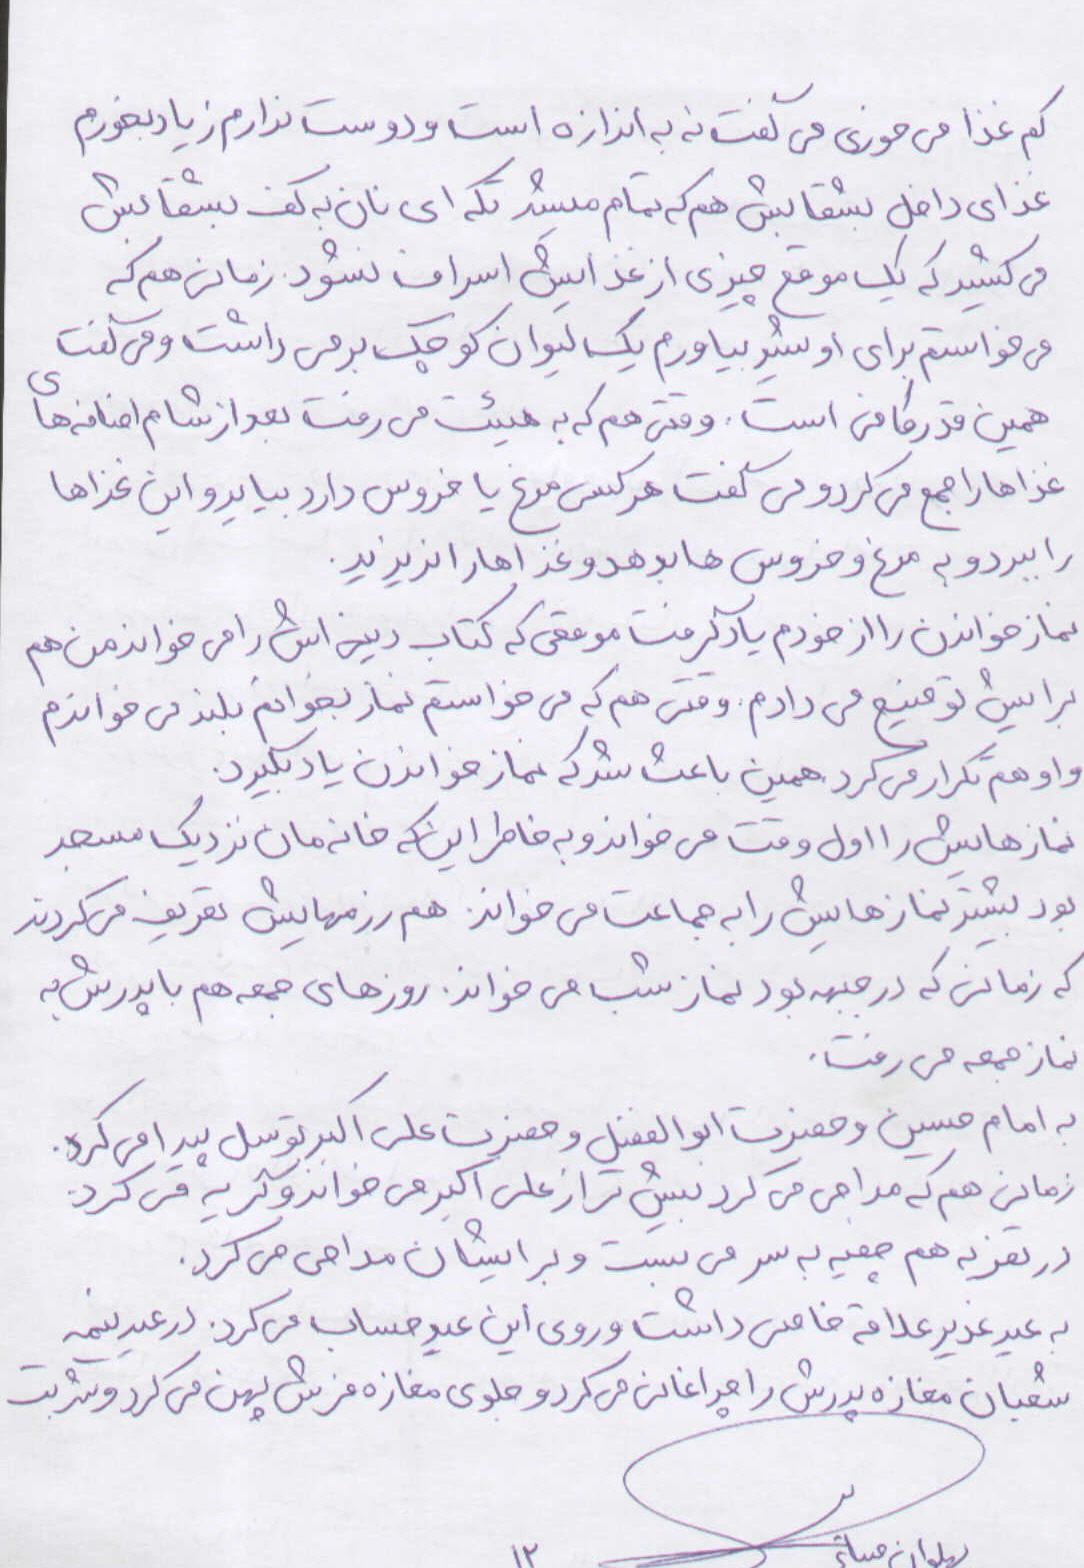 کم غذا می خوری می گفت نه به اندازه است و دوست ندارم زیاد بخورم
غذای داخل بشقابش هم که تمام میشد تکه ای نان به کف بشقابش
می کشید که یک موقع چیزی از غذایش اسراف نشود. زمانی هم که
می خواستم برای او شیر بیاورم یک لیوان کوچک برمی داشت و می گفت
همین قدر کافی است. وقتی هم که به هیئت می رفت بعد از شام اضافه های
غذاها را جمع می کرد و می گفت هر کس مرغ یا خروس دارد بیاید و این غذاها
را ببرد و به مرغ و خروس ها بدهد و غذاها را نریزید.
نماز خواندن را از خودم یاد گرفت موقعی که کتاب دینی اش را می خواند من هم
برایش توضیح می دادم. وقتی هم که می خواستم نماز بخوانم بلند می خواندم
و او هم تکرار می کرد. همین باعث شد که نماز خواندن یاد بگیرد.
نمازهایش را اول وقت می خواند و به خاطر اینکه خانه مان نزدیک مسجد
بود بیشتر نمازهایش را به جماعت می خواند. هم رزمهایش تعریف می کردند
که زمانی که در جبهه بود نماز شب می خواند. روزهای جمعه هم با پدرش به
نماز جمعه می رفت.
به امام حسین و حضرت ابوالفضل و حضرت علی اکبر توسل پیدا می کرد.
زمانی هم که مداحی می کرد بیش تر از علی اکبر می خواند و گریه می کرد.
در تعزیه هم چفیه به سر می بست و برایشان مداحی می کرد.
به عید غدیر علاقه خاصی داشت و روی این عید حساب می کرد. در عید نیمه
شعبان مغازه پدرش را چراغانی می کرد و جلوی مغازه فرش پهن می کرد و شربت
۱۲